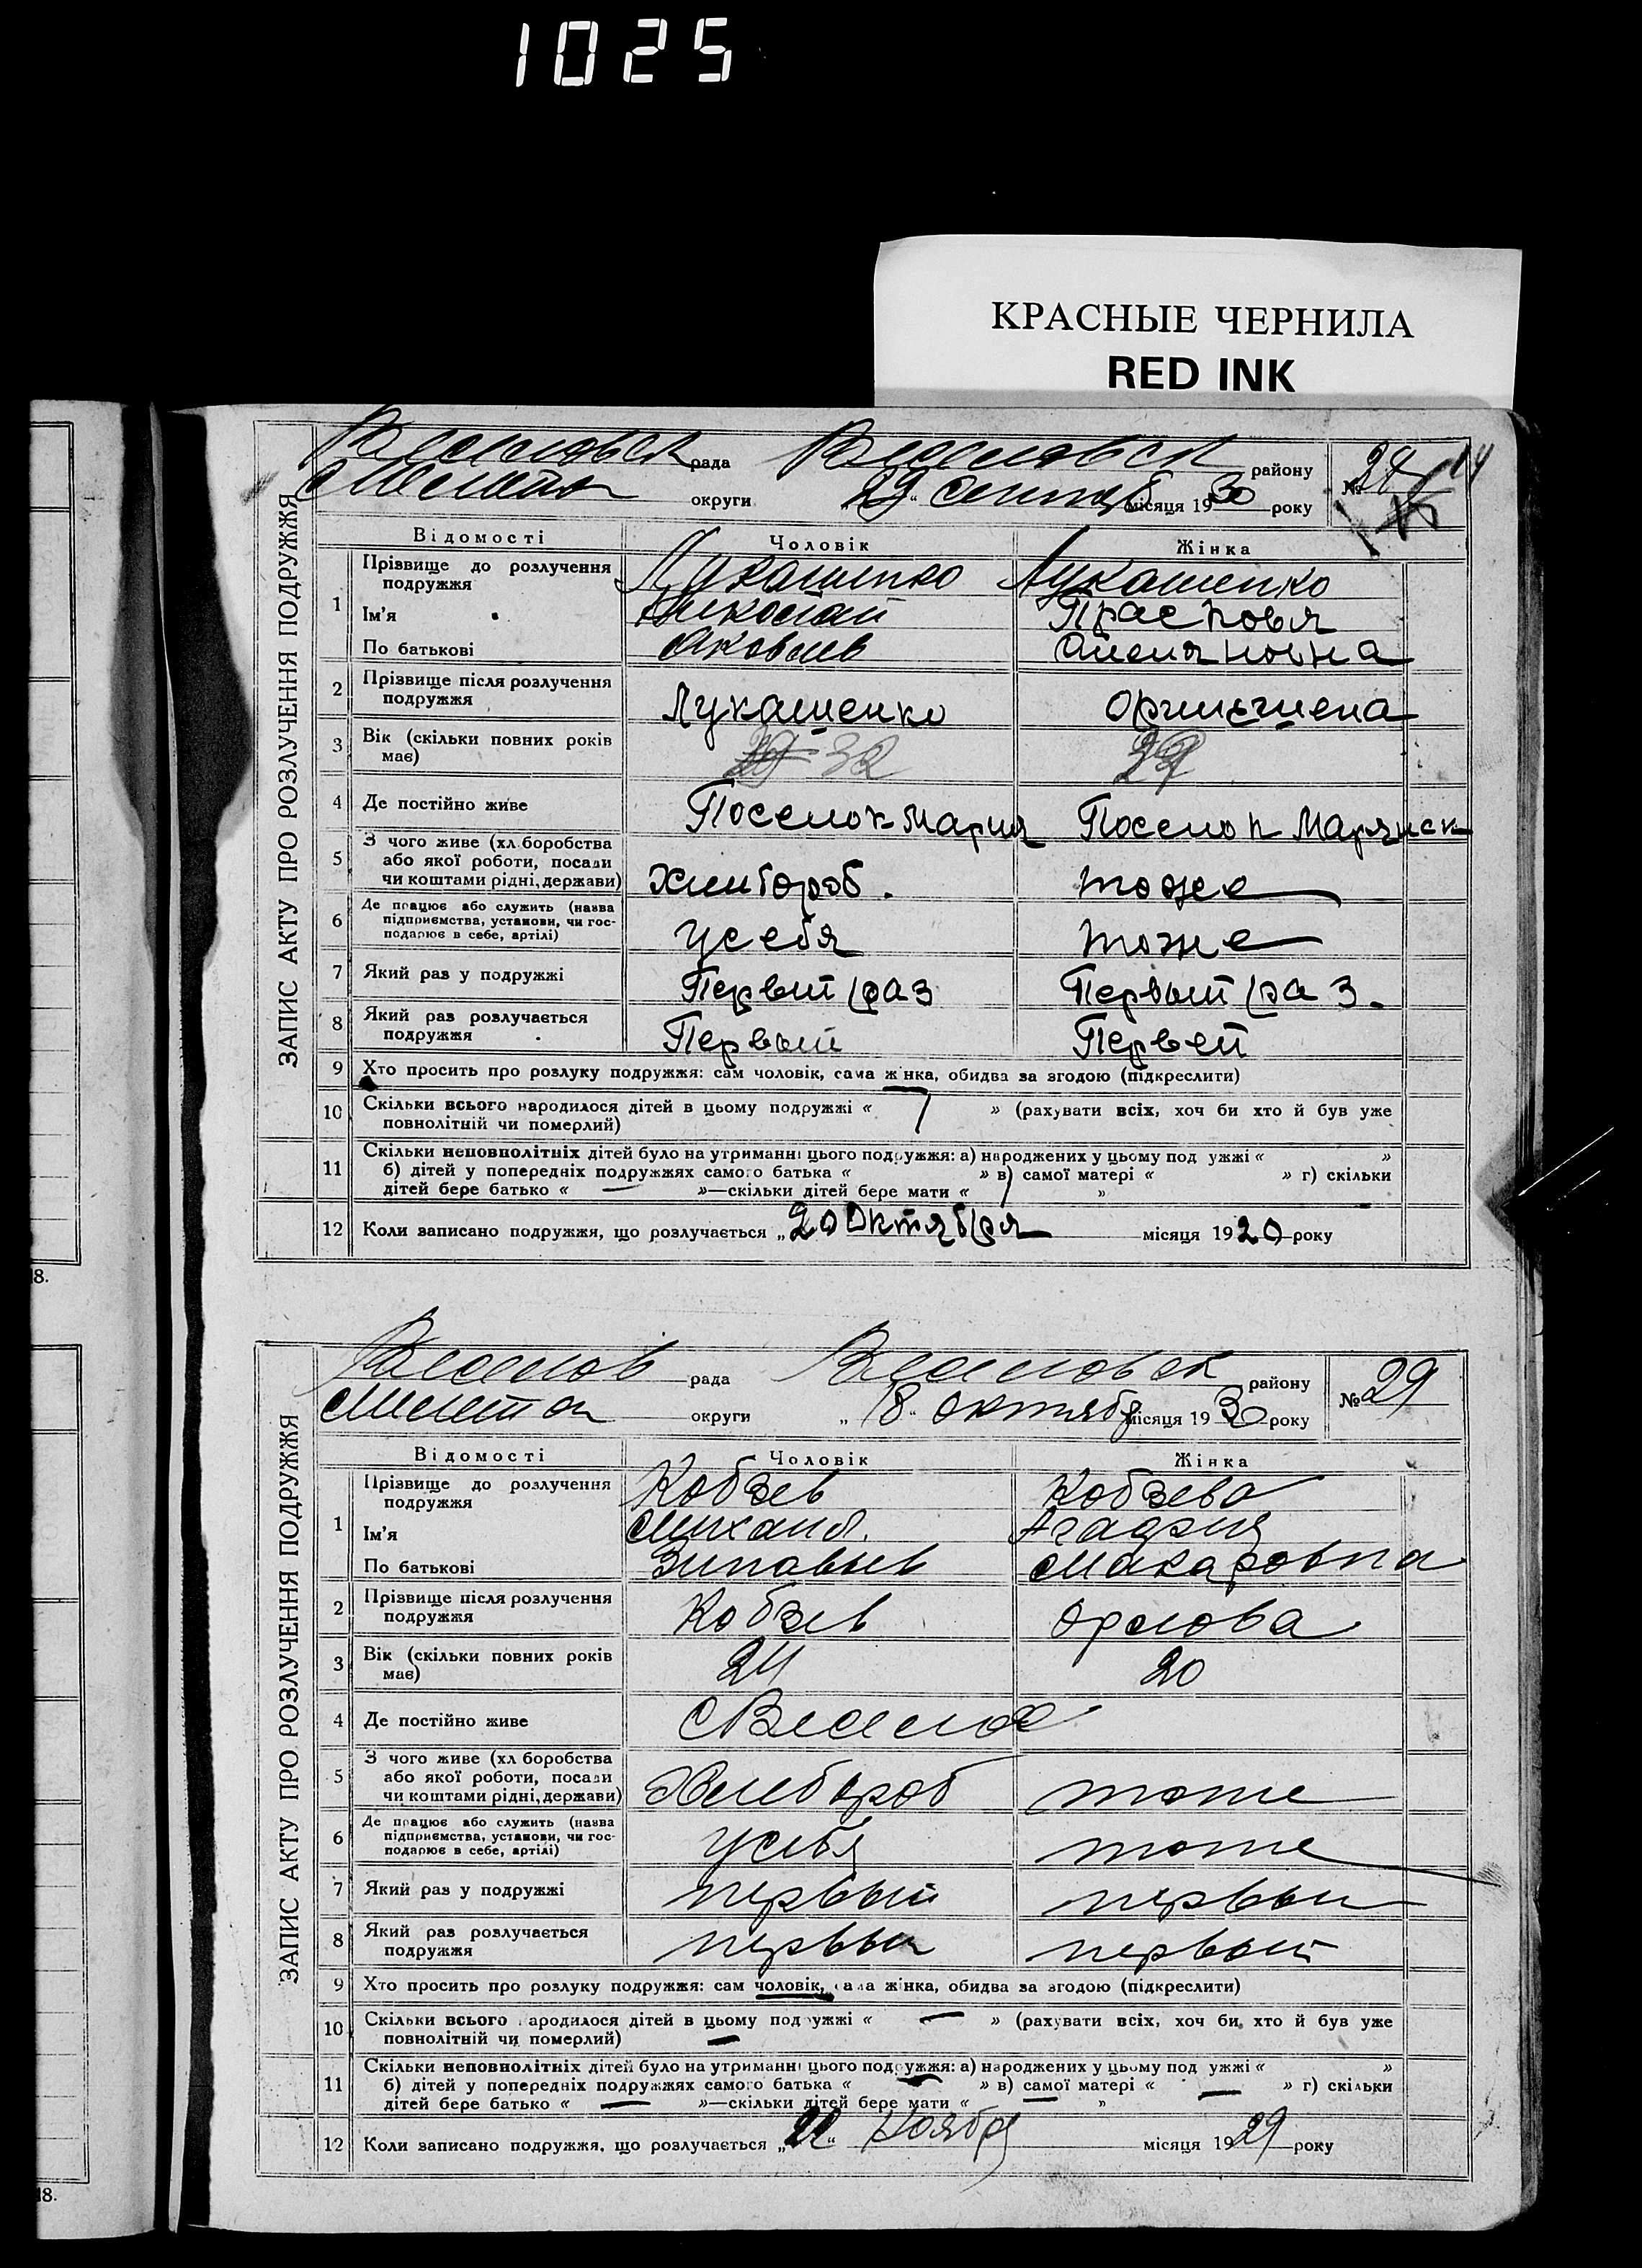 1025
КРАСНЫЕ ЧЕРНИЛА
RED INK
ЗАПИС АКТУ ПРО РОЗЛУЧЕННЯ ПОДРУЖЖЯ
Веселовск рада Веселовск району № 28
Мелитоп округи „29“ Сентяб місяця 1930 року
Відомості Чоловік Жінка
1 Прізвище до розлучення подружжя Лукашенко Лукашенко
Ім’я Николай Прасковя
По батькові Яковлев
2 Прізвище після розлучення подружжя Лукашенко
3 Вік (скільки повних років має) 32 29
4 Де постійно живе Поселок Мария Поселок Марянск
5 З чого живе (хл боробства
або якої роботи, посади
чи коштами рідні, держави) Хлебороб. тоже
6 Де працює або служить (назва
підприємства, установи, чи гос-
подарює в себе, артілі) усебя тоже
7 Який раз у подружжі Первый раз Первый раз.
8 Який раз розлучається
подружжя Первый Первей
9 Хто просить про розлуку подружжя: сам чоловік, сама жінка, обидва за згодою (підкреслити)
10 Скільки всього народилося дітей в цьому подружжі « » (рахувати всіх, хоч би хто й був уже
повнолітній чи померлий)
11 Скільки неповнолітніх дітей було на утриманні цього подружжя: а) народжених у цьому под ужжі « »
б) дітей у попередніх подружжях самого батька « » в) самої матері « » г) скільки
дітей бере батько « — »—скільки дітей бере мати « »
12 Коли записано подружжя, що розлучається „20 Октября місяця 1920 року
18.
ЗАПИС АКТУ ПРО РОЗЛУЧЕННЯ ПОДРУЖЖЯ
Веселов рада Веселовск району № 29
Мелитоп округи „18“ октябр місяця 1930 року
Відомості Чоловік Жінка
1 Прізвище до розлучення
подружжя Кобзев Кобзева
Ім’я Михаил. Агафия
По батькові Зиновьев Макаровна
2 Прізвище після розлучення
подружжя Кобзев Орлова
3 Вік (скільки повних років
має) 24 20
4 Де постійно живе с Веселое
5 З чого живе (хл боробства
або якої роботи, посади
чи коштами рідні, держави) Хлебороб тоже
6 Де працює або служить (назва
підприємства, установи, чи гос-
подарює в себе, артілі) усебя тоже
7 Який раз у подружжі первый первый
8 Який раз розлучається
подружжя первый первый
9 Хто просить про розлуку подружжя: сам чоловік, сама жінка, обидва за згодою (підкреслити)
10 Скільки всього народилося дітей в цьому подружжі « — » (рахувати всіх, хоч би хто й був уже
повнолітній чи померлий)
11 Скільки неповнолітніх дітей було на утриманні цього подружжя: а) народжених у цьому под ужжі « »
б) дітей у попередніх подружжях самого батька « — » в) самої матері « — » г) скільки
дітей бере батько « — »—скільки дітей бере мати « — »
12 Коли записано подружжя, що розлучається „22“ Ноября місяця 1929 року
18.